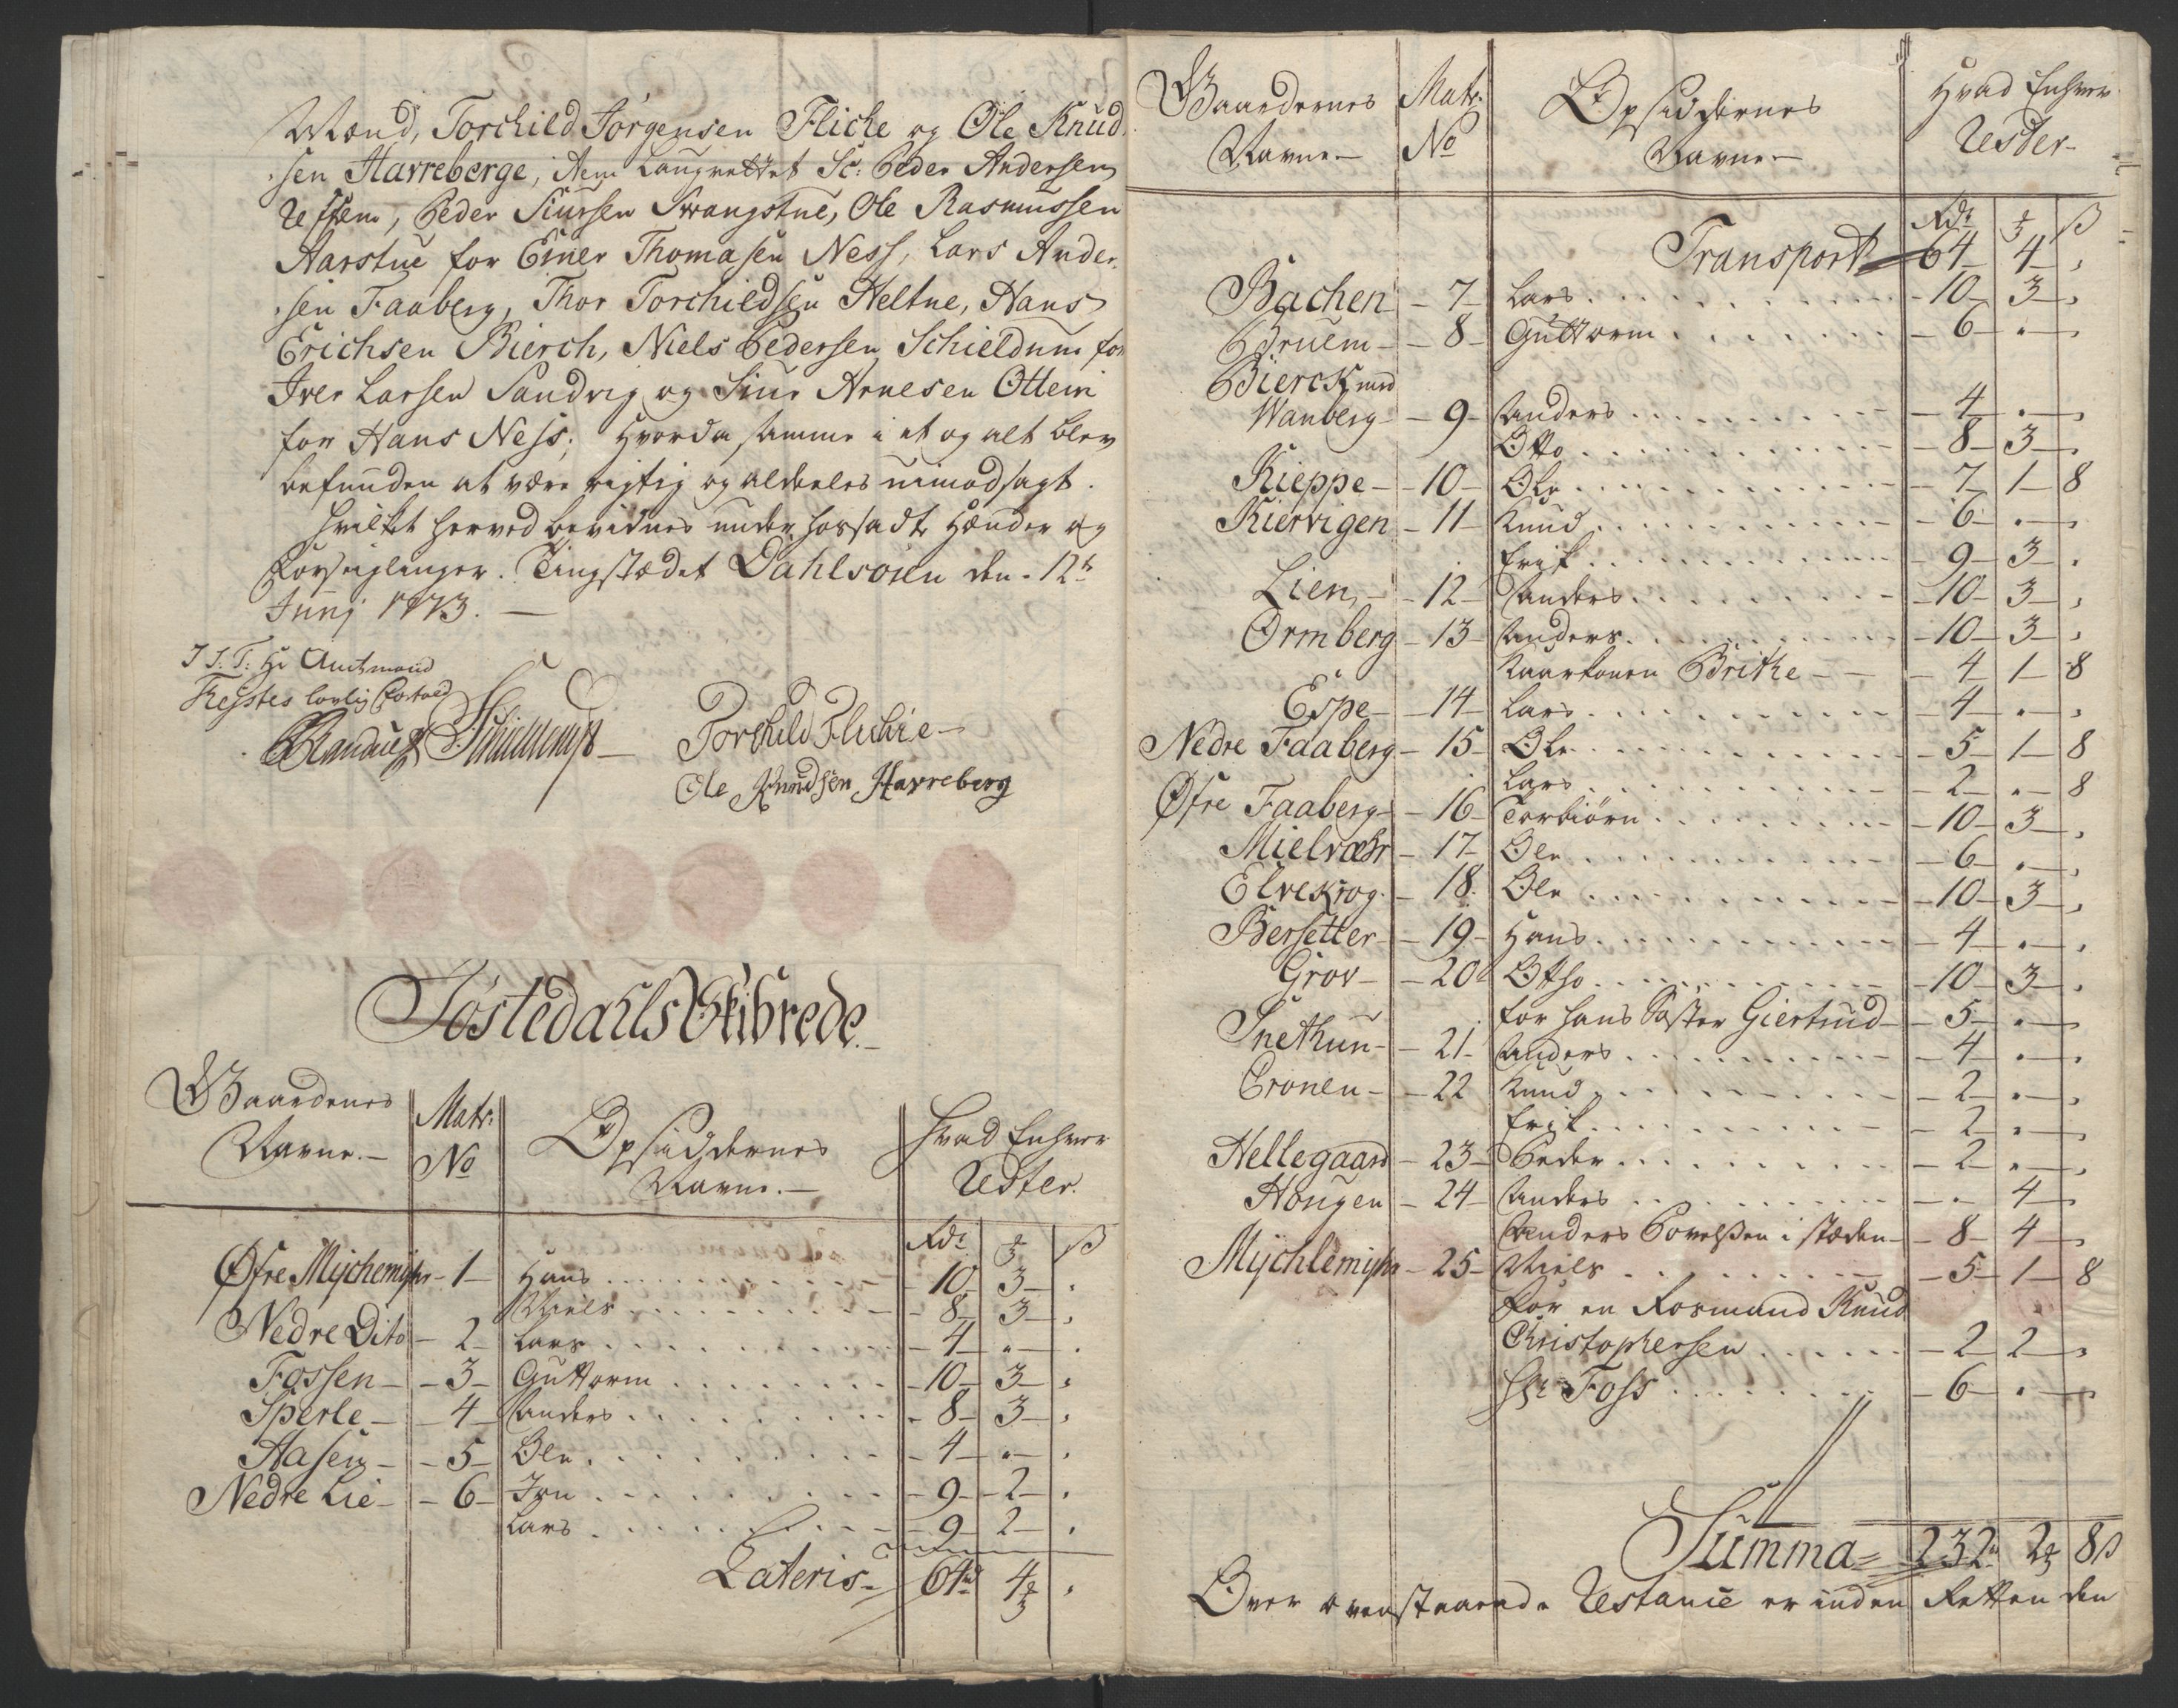 Mænd, Torchild Jörgensen Fliche og Ole Knud
sen Harreberge, item Laugrettet Sr: Peder Andersen
Peder Siursen Svangstue, Ole Rasmussen
Aarstue for Einer Thomasen Ness, Lars Ander
sen Faaberg, Thor Torchildsen Heltne, Hans
Erichsen Bierch, Niels Pedersen Schieldum for
Iver Larsen Sandvig og Siur Arnesen Ottem
for Hans Ness; hvorda samme i et og alt blev
befunden at være rigtig og aldeeles uimodsagt.
hvilket herved bevidnes under hossadte Hænder og
Forseiglinger. Tingstædet Dahlsöien den 12te
Junj 1773.
I S: T: Hr Amtmand
lovlig Forfald
Torchild Fliche
Ole Knudsen Harreberg
Jöstedahls Skibrede
Gaardenes Navne. Matr: No Opsiddernes Navne. Hvad Enhver Rester.
Rdr ß
Øfre Mychemyhr 1 Hans 10 3
Niels 8 3
Nedre Dito 2 Lars 4
Fossen 3 Guttorm 10 3
Sperle 4 Anders 8 3
Aasen 5 Ole 4
Nedre Lie 6 Jon 9 2
Lars 9 2
Lateris 64 4
Gaardernes Navne Matr: No Opsiddernes Navne Hvad Enhver Rester
Rdr ß
Transport 64 4
Bachen 7 Lars 10 3
Bruem 8 Guttorm 6
Bierck med
Wanberg 9 Anders 4
Otto 8 3
Kieppe 10 Ole 7 1 8
Kiervigen 11 Knud 6
Erik 9 3
Lien 12 Anders 10 3
Ormberg 13 Anders 10 3
Kaarkonen Brithe 4 1 8
Espe 14 Lars 4
Nedre Faaberg 15 Ole 5 1 8
Lars 2 8
Øfre Faaberg 16 Torbiörn 10 3
Mielvær 17 Ole 6
Elvekrog 18 Ole 10 3
Bersetter 19 Hans 4
Grov 20 Otho 10 3
for hans Söster Giertrud 5
Snethun 21 Anders 4
Cronen 22 Knud 2
Erik 2
Hellegaard 23 Peder 2
Hougen 24 Anders 4
Anders Povelsen i stæden 8 4
Mychlemyhr 25 Niels 5 1 8
for en Rosmand Knud
Christophersen 2 2
Hr: Foss 6
Summa 232 2 8 ß
Over ovenstaaende Restance er inden Retten den